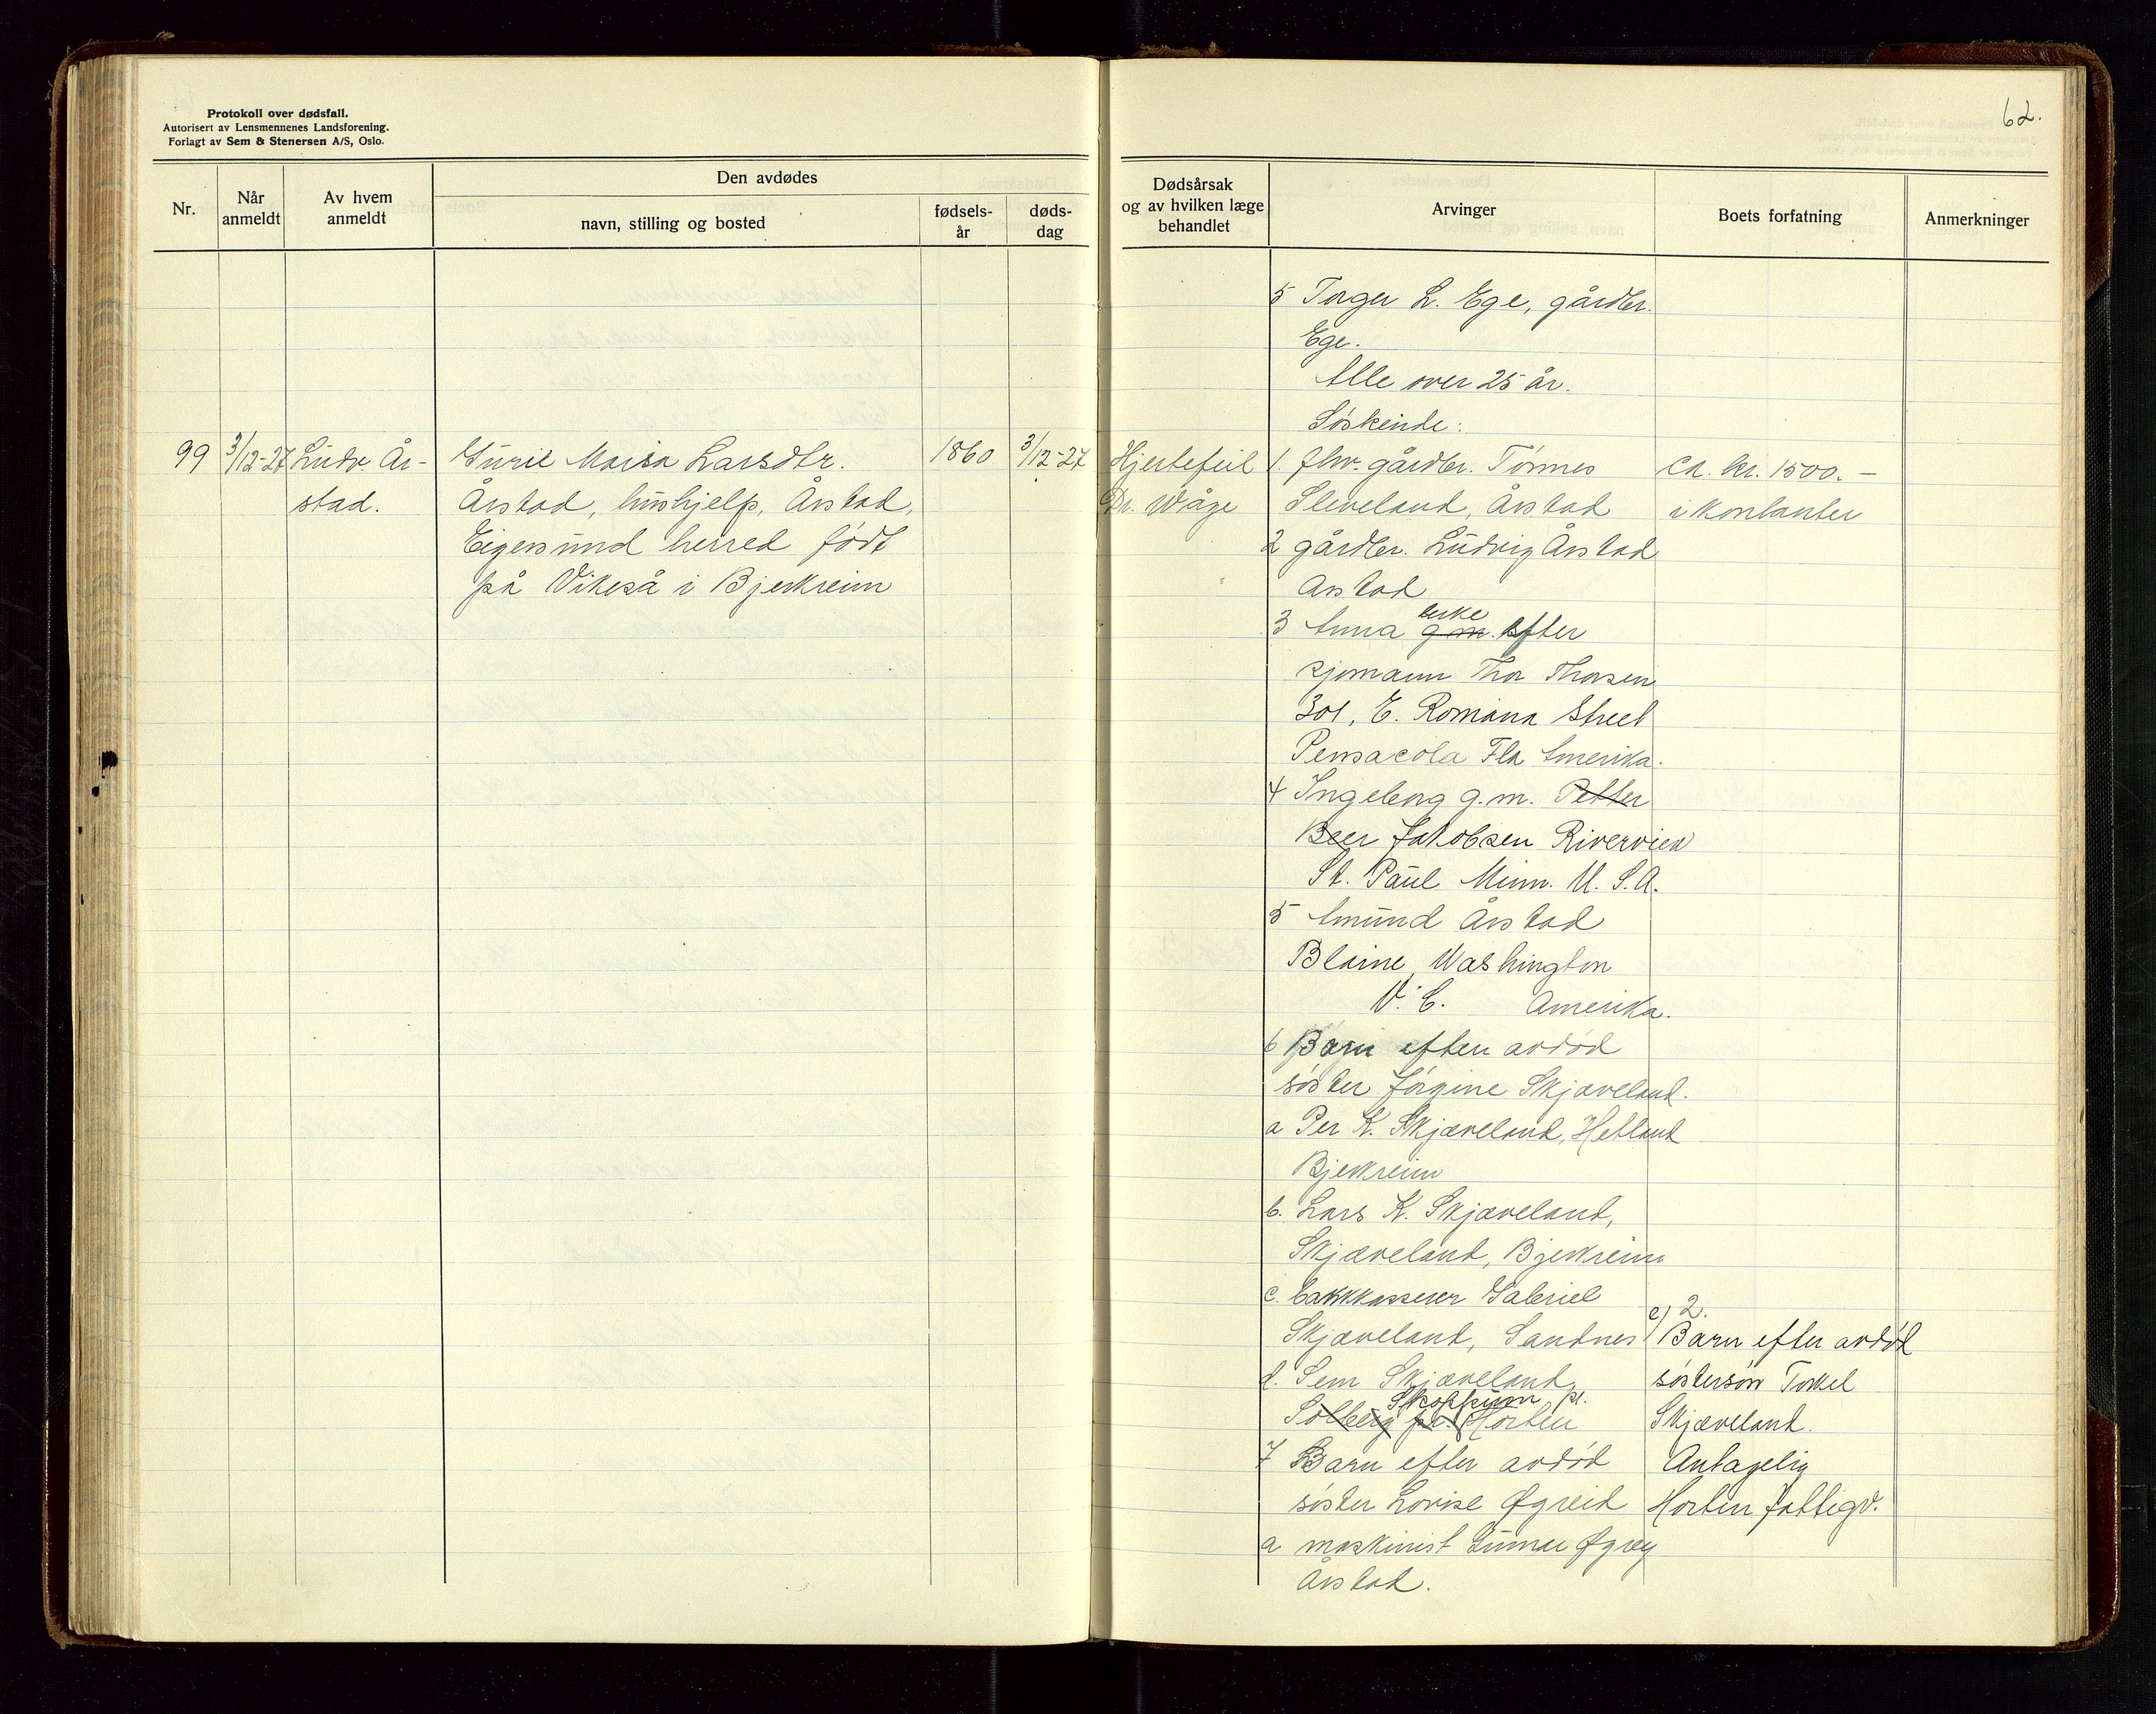 Protokoll over dødsfall.
Autorisert av Lensmennenes Landsforening.
Forlagt av Sem & Stenersen A/S, Oslo.
62.
Nr.
Når anmeldt
Av hvem anmeldt
Den avdødes
navn, stilling og bosted
fødsels-år
døds-dag
Dødsårsak og av hvilken læge behandlet
Arvinger
Boets forfatning
Anmerkninger
5 Torger L. Ege, gårdbr.
Ege.
Alle over 25 år.
Søskende:
99 3/12-27 Ludv År-
stad.
Gurie Maria Larsdtr.
Årstad, hushjelp, Årstad,
Eigersund herred født
på Vikeså i Bjerkreim
1860
3/12-27
Hjertefeil
Dr. Wåge
1. fhv. gårdbr. Tønnes
Sleveland, Årstad
2 gårdbr. Ludvig Årstad
Årstad
3 Anna g.m. enke efter
sjømann Thor Thorsen
301, E. Romana Street
Pensacola Fla Amerika.
4 Ingeborg g.m. Petter
Beer Jakobsen Riverview
St. Paul Minn. U.S.A.
5 Amund Årstad
Blaine, Washington
V. C. Amerika.
6 Barn efter avdød
søster Jørgine Skjæveland.
a Per K. Skjæveland, Hetland
Bjerkreim
b. Lars K. Skjæveland,
Skjæveland, Bjerkreim
c. bankkasserer Gabriel
Skjæveland, Sandnes
d. Sem Skjæveland,
Skoppum st.
Solberg pr. Horten
7 Barn efter avdød
søster Lovise Øgreid
a maskinist Gunnar Øgrey
Årstad.
ca. kr. 1500.-
i kontanter
e) 2.
Barn efter avdød
søstersøn Torkel
Skjæveland.
Antagelig
Horten fattigv.